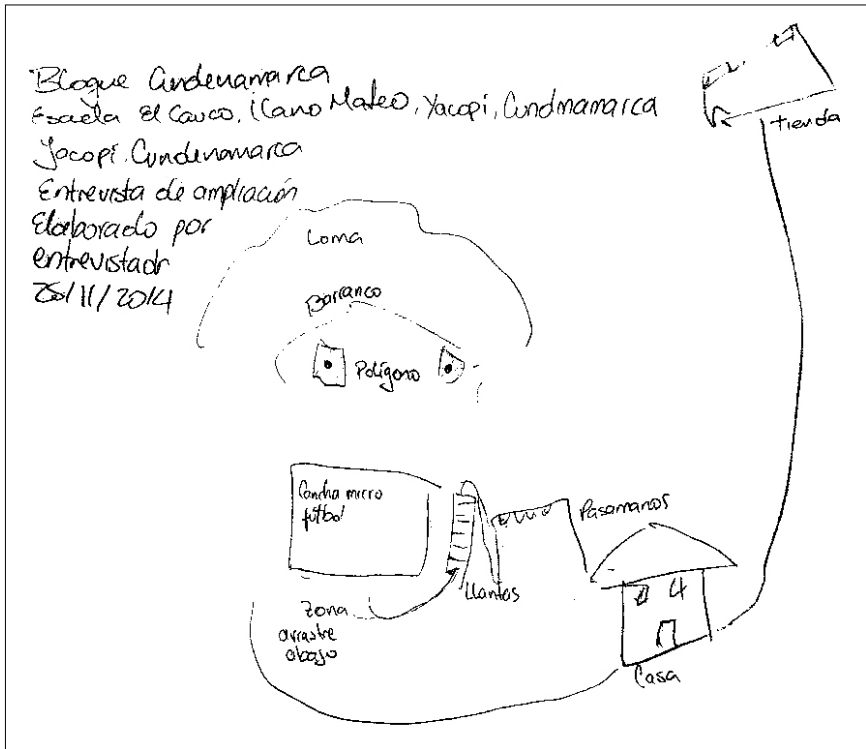 Bloque Cundenamarca
Escuela El Cauco, Llano Mateo, Yacopí, Cundinamarca
Yacopí, Cundenamarca
Entrevista de ampliación
Elaborado por
entrevistadr
26/11/2014
tienda
Loma
Barranco
Polígono
Cancha micro
fútbol
Pasamanos
Llantas
Zona
arrastre
abajo
Casa